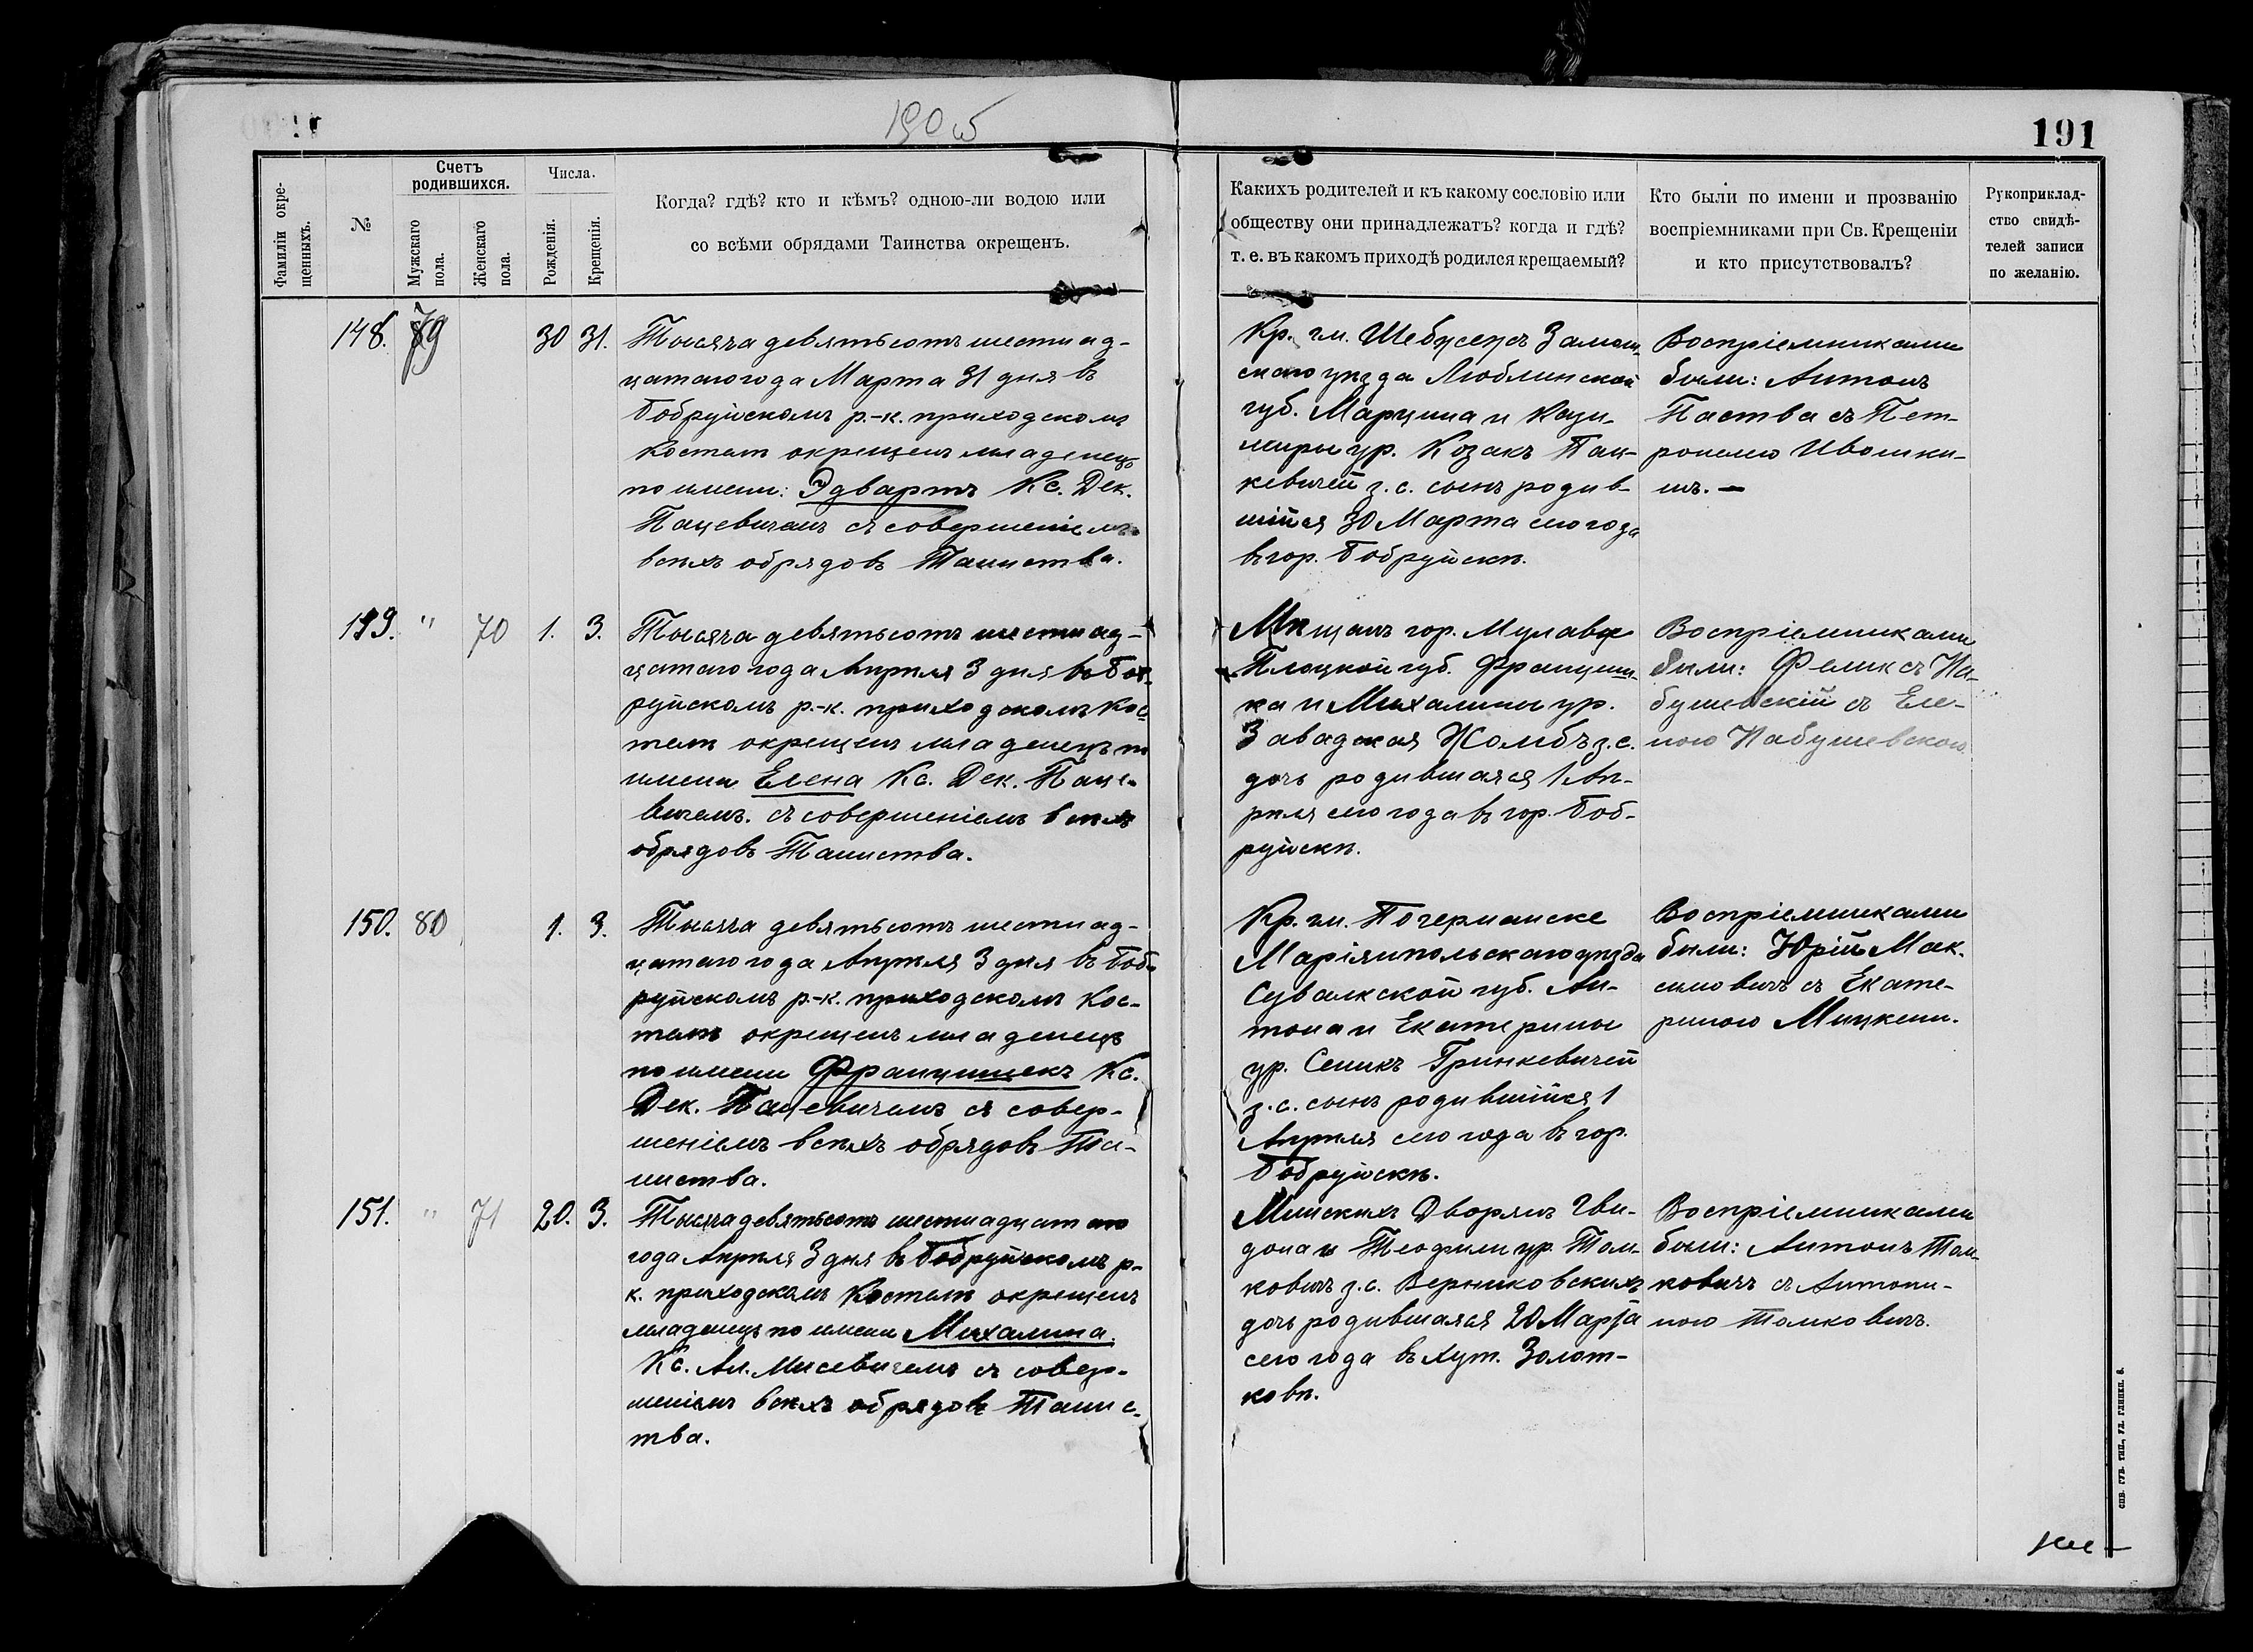 190 об
191
Фамиліи окрещенныхъ.
№
Счетъ родившихся.
Мужскаго пола.
Женскаго пола.
Числа.
Рожденія.
Крещенія.
Когда? гдѣ? кто и кѣмъ? одною-ли водою или
со всѣми обрядами Таинства окрещенъ.
Какихъ родителей и къ какому сословію или
обществу они принадлежатъ? когда и гдѣ?
т. е. въ какомъ приходѣ родился крещаемый?
Кто были по имени и прозванію
воспріемниками при Св. Крещеніи
и кто присутствовалъ?
Рукоприклад-
ство свидѣ-
телей записи
по желанію.
148. 79 30 31.
Тысяча девятьсотъ шестнад-
цатаго года Марта 31 дня въ
Бобруйскомъ р.-к. приходскомъ
Костелѣ окрещенъ младенецъ
по имени: Эдвартъ Кс. Дек.
Пацевичемъ съ совершеніемъ
всѣхъ обрядовъ Таинства.
Кр. гм. Шебусецъ Замост-
скаго уѣзда Люблинской
губ. Марцина и Кази-
миры ур. Козакъ Пан-
кевичей з. с. сынъ родив-
шійся 30 Марта сего года
въ гор. Бобруйскѣ.
Воспріемниками
были: Антонъ
Паства съ Пет-
ронелею Ивошки-
шъ. —
149. " 70 1. 3.
Тысяча девятьсотъ шестнад-
цатаго года Апрѣля 3 дня въ Боб-
руйскомъ р.-к. приходскомъ Кос-
телѣ окрещенъ младенецъ по
имени Елена Кс. Дек. Паце-
вичемъ. съ совершеніемъ всѣхъ
обрядовъ Таинства.
Мѣщанъ гор. Млава
Плоцкой губ. Францишка
и Михалины ур.
Завадская Жомбъ з. с.
дочь родившаяся 1 Ап-
рѣля сего года въ гор. Боб-
руйскѣ.
Воспріемниками
были: Феликсъ На-
бушевскій съ Еле-
ною Набушевскою
150. 80 1. 3.
Тысяча девятьсотъ шестнад-
цатаго года Апрѣля 3 дня въ Боб-
руйскомъ р.-к. приходскомъ Кос-
телѣ окрещенъ младенецъ
по имени Францишекъ Кс.
Дек. Пацевичемъ съ совер-
шеніемъ всѣхъ обрядовъ Та-
инства.
Кр. гм. Погерманске
Маріямпольскаго уѣзда
Сувалкской губ. Ан-
тона и Екатерины
ур. Сеникъ Гринкевичей
з. с. сынъ родившійся 1
Апрѣля сего года въ гор.
Бобруйскѣ.
Воспріемниками
были: Юрій Мак-
симовичъ съ Екате-
риною Мицкени.
151. " 71 20. 3.
Тысяча девятьсотъ шестнадцатаго
года Апрѣля 3 дня въ Бобруйскомъ р.-
к. приходскомъ Костелѣ окрещенъ
младенецъ по имени Михалина.
Кс. Ал. Мисевичемъ съ совер-
шеніемъ всѣхъ обрядовъ Таинс-
тва.
Минскихъ Дворянъ Гви-
дона и Теофили ур. Том-
ковичъ з. с. Верниковскихъ
дочь родившаяся 20 Марта
сего года въ хут. Золот-
ковѣ.
Воспріемниками
были: Антонъ Том-
ковичъ съ Антони-
ною Томковичъ.
СПВ. ГУБ. ТИП., УЛ. ГЛИНКИ. 8.